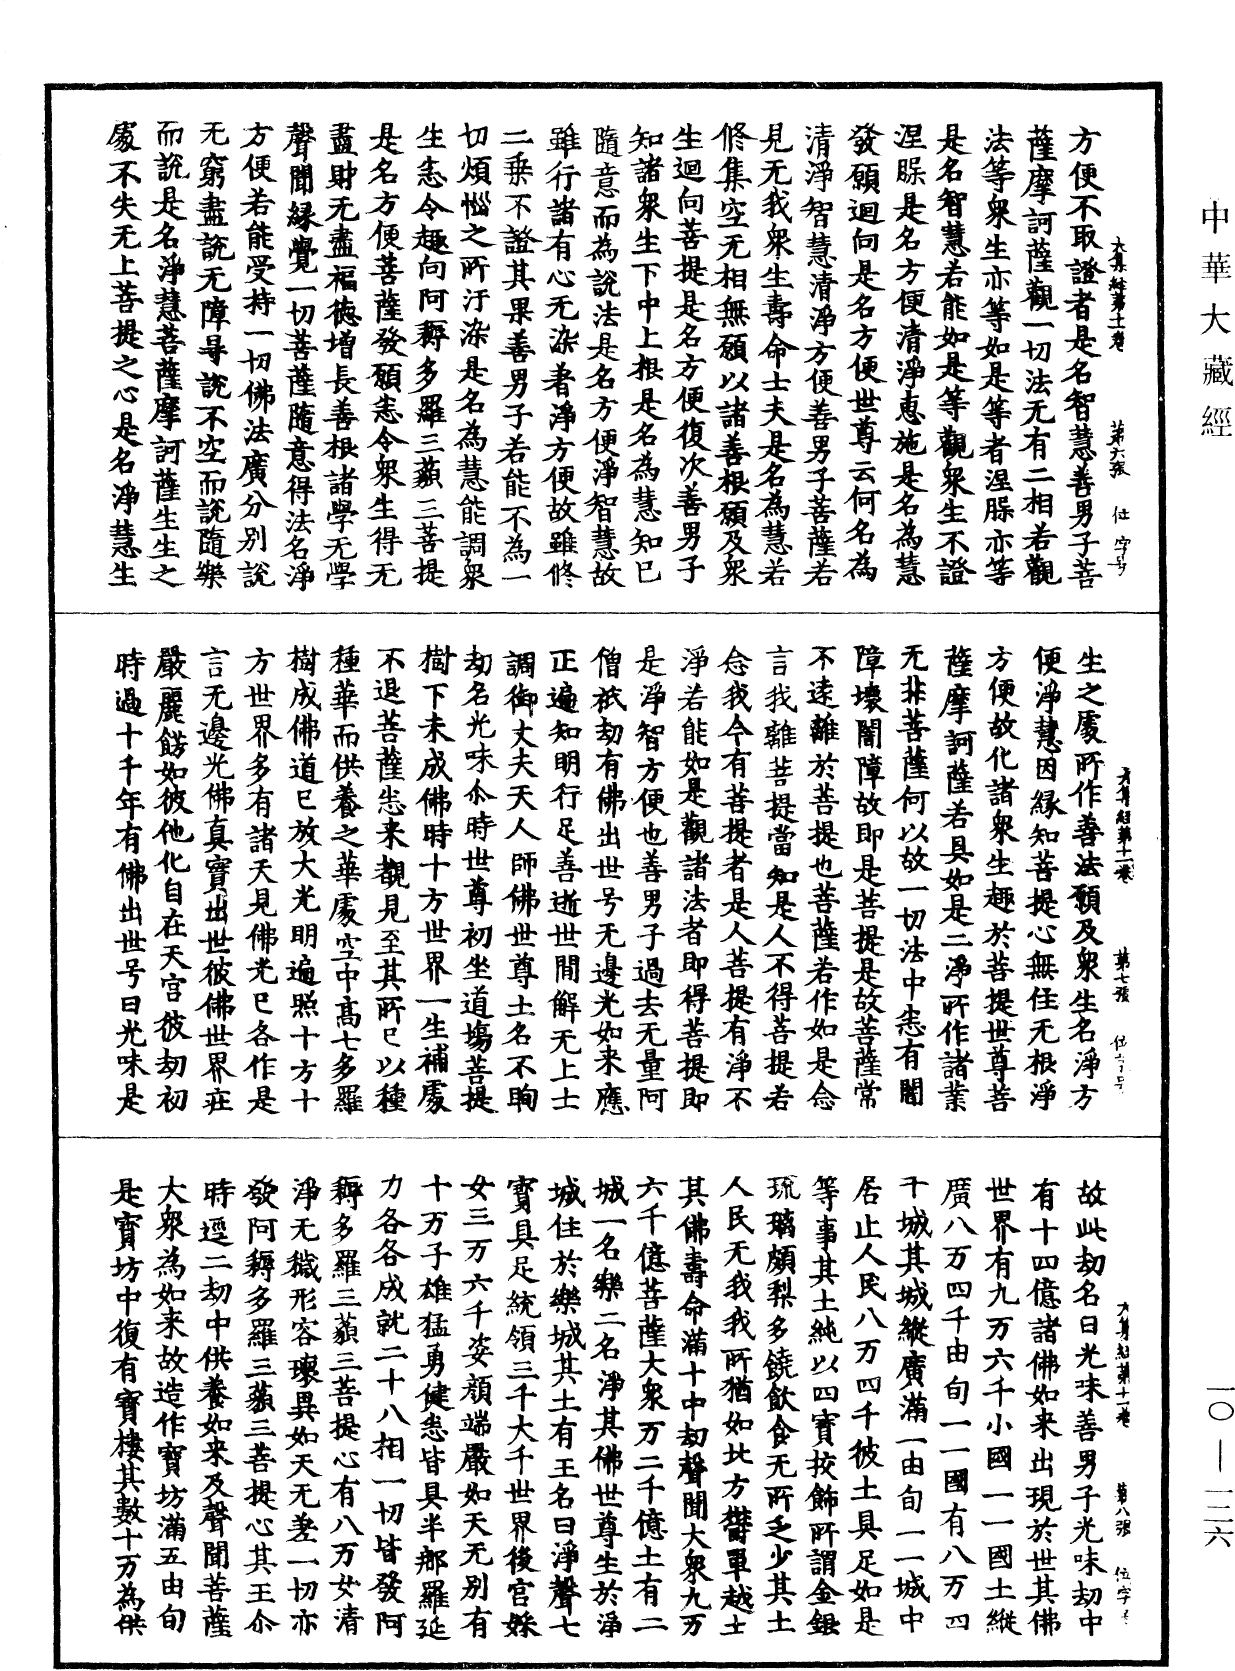 中華大藏經
大集經第十一卷　第六張　位字号
方便不取證者是名智慧善男子菩
薩摩訶薩觀一切法无有二相若觀
法等衆生亦等如是等者涅槃亦等
是名智慧若能如是等觀衆生不證
涅槃是名方便清淨惠施是名為慧
發願迴向是名方便世尊云何名為
清淨智慧清淨方便善男子菩薩若
見无我衆生壽命士夫是名為慧若
修集空无相無願以諸善根願及衆
生迴向菩提是名方便復次善男子
知諸衆生下中上根是名為慧知已
隨意而為說法是名方便淨智慧故
雖行諸有心无染著淨方便故雖修
二乗不證其果善男子若能不為一
切煩惱之所汙染是名為慧能調衆
生悉令趣向阿耨多羅三藐三菩提
是名方便菩薩發願悉令衆生得无
盡財无盡福德增長善根諸學无學
聲聞縁覺一切菩薩隨意得法名淨
方便若能受持一切佛法廣分別說
无窮盡說无障㝵說不空而說隨樂
而說是名淨慧菩薩摩訶薩生生之
處不失无上菩提之心是名淨慧生
大集經第十一卷　第七張　位字号
生之處所作善法願及衆生名淨方
便淨慧因緣知菩提心無住无根淨
方便故化諸衆生趣於菩提世尊菩
薩摩訶薩若具如是二淨所作諸業
无非菩薩何以故一切法中悉有闇
障壞闇障故即是菩提是故菩薩常
不遠離於菩提也菩薩若作如是念
言我離菩提當知是人不得菩提若
念我今有菩提者是人菩提有淨不
淨若能如是觀諸法者即得菩提即
是淨智方便也善男子過去无量阿
僧祇劫有佛出世号无邊光如来應
正遍知明行足善逝世間解无上士
調御丈夫天人師佛世尊土名不眴
劫名光味尒時世尊初坐道塲菩提
樹下未成佛時十方世界一生補處
不退菩薩悉来覩見至其所已以種
種華而供養之華處空中髙七多羅
樹成佛道已放大光明遍照十方十
方世界多有諸天見佛光已各作是
言无邊光佛真實出世彼佛世界莊
嚴麗餝如彼他化自在天宮彼劫初
時過十千年有佛出世号曰光味是
大集經第十一卷　第八張　位字号
故此劫名曰光味善男子光味劫中
有十四億諸佛如来出現於世其佛
世界有九万六千小國一一國土縱
廣八万四千由旬一一國有八万四
千城其城縱廣滿一由旬一一城中
居止人民八万四千彼土具足如是
等事其土純以四寶挍飾所謂金銀
琉璃頗梨多饒飲食无所乏少其土
人民无我我所猶如北方欝單越土
其佛壽命滿十中劫聲聞大衆九万
六千億菩薩大衆万二千億土有二
城一名樂二名淨其佛世尊生於淨
城住於樂城其土有王名曰淨聲七
寳具足統領三千大千世界後宮婇
女三万六千姿顔端嚴如天无別有
十万子雄猛勇健悉皆具半那羅延
力各各成就二十八相一切皆發阿
耨多羅三藐三菩提心有八万女清
淨无穢形容瓌異如天无差一切亦
發阿耨多羅三藐三菩提心其王尒
時逕二劫中供養如来及聲聞菩薩
大衆為如来故造作寳坊滿五由旬
是寳坊中復有寳樓其數十万為供
一〇—一二六